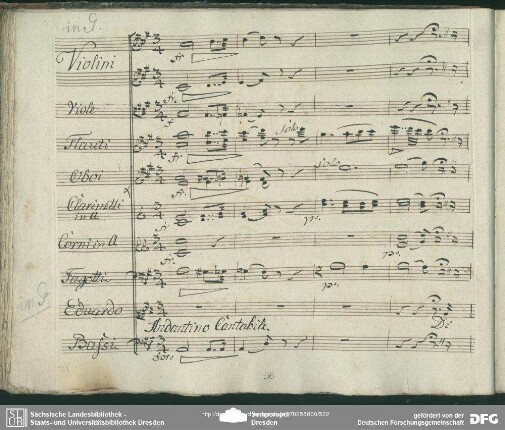 in G.
Violini
Viole
Flauti
Solo
Oboi
Solo
Clarinetti
in A
Corni in A
Fagotti
in G
Eduardo
Di
Andantino Cantabile.
Bassi
Sächsische Landesbibliothek -
Staats- und Universitätsbibliothek Dresden
Dresden
gefördert von der
Deutschen Forschungsgemeinschaft
DFG